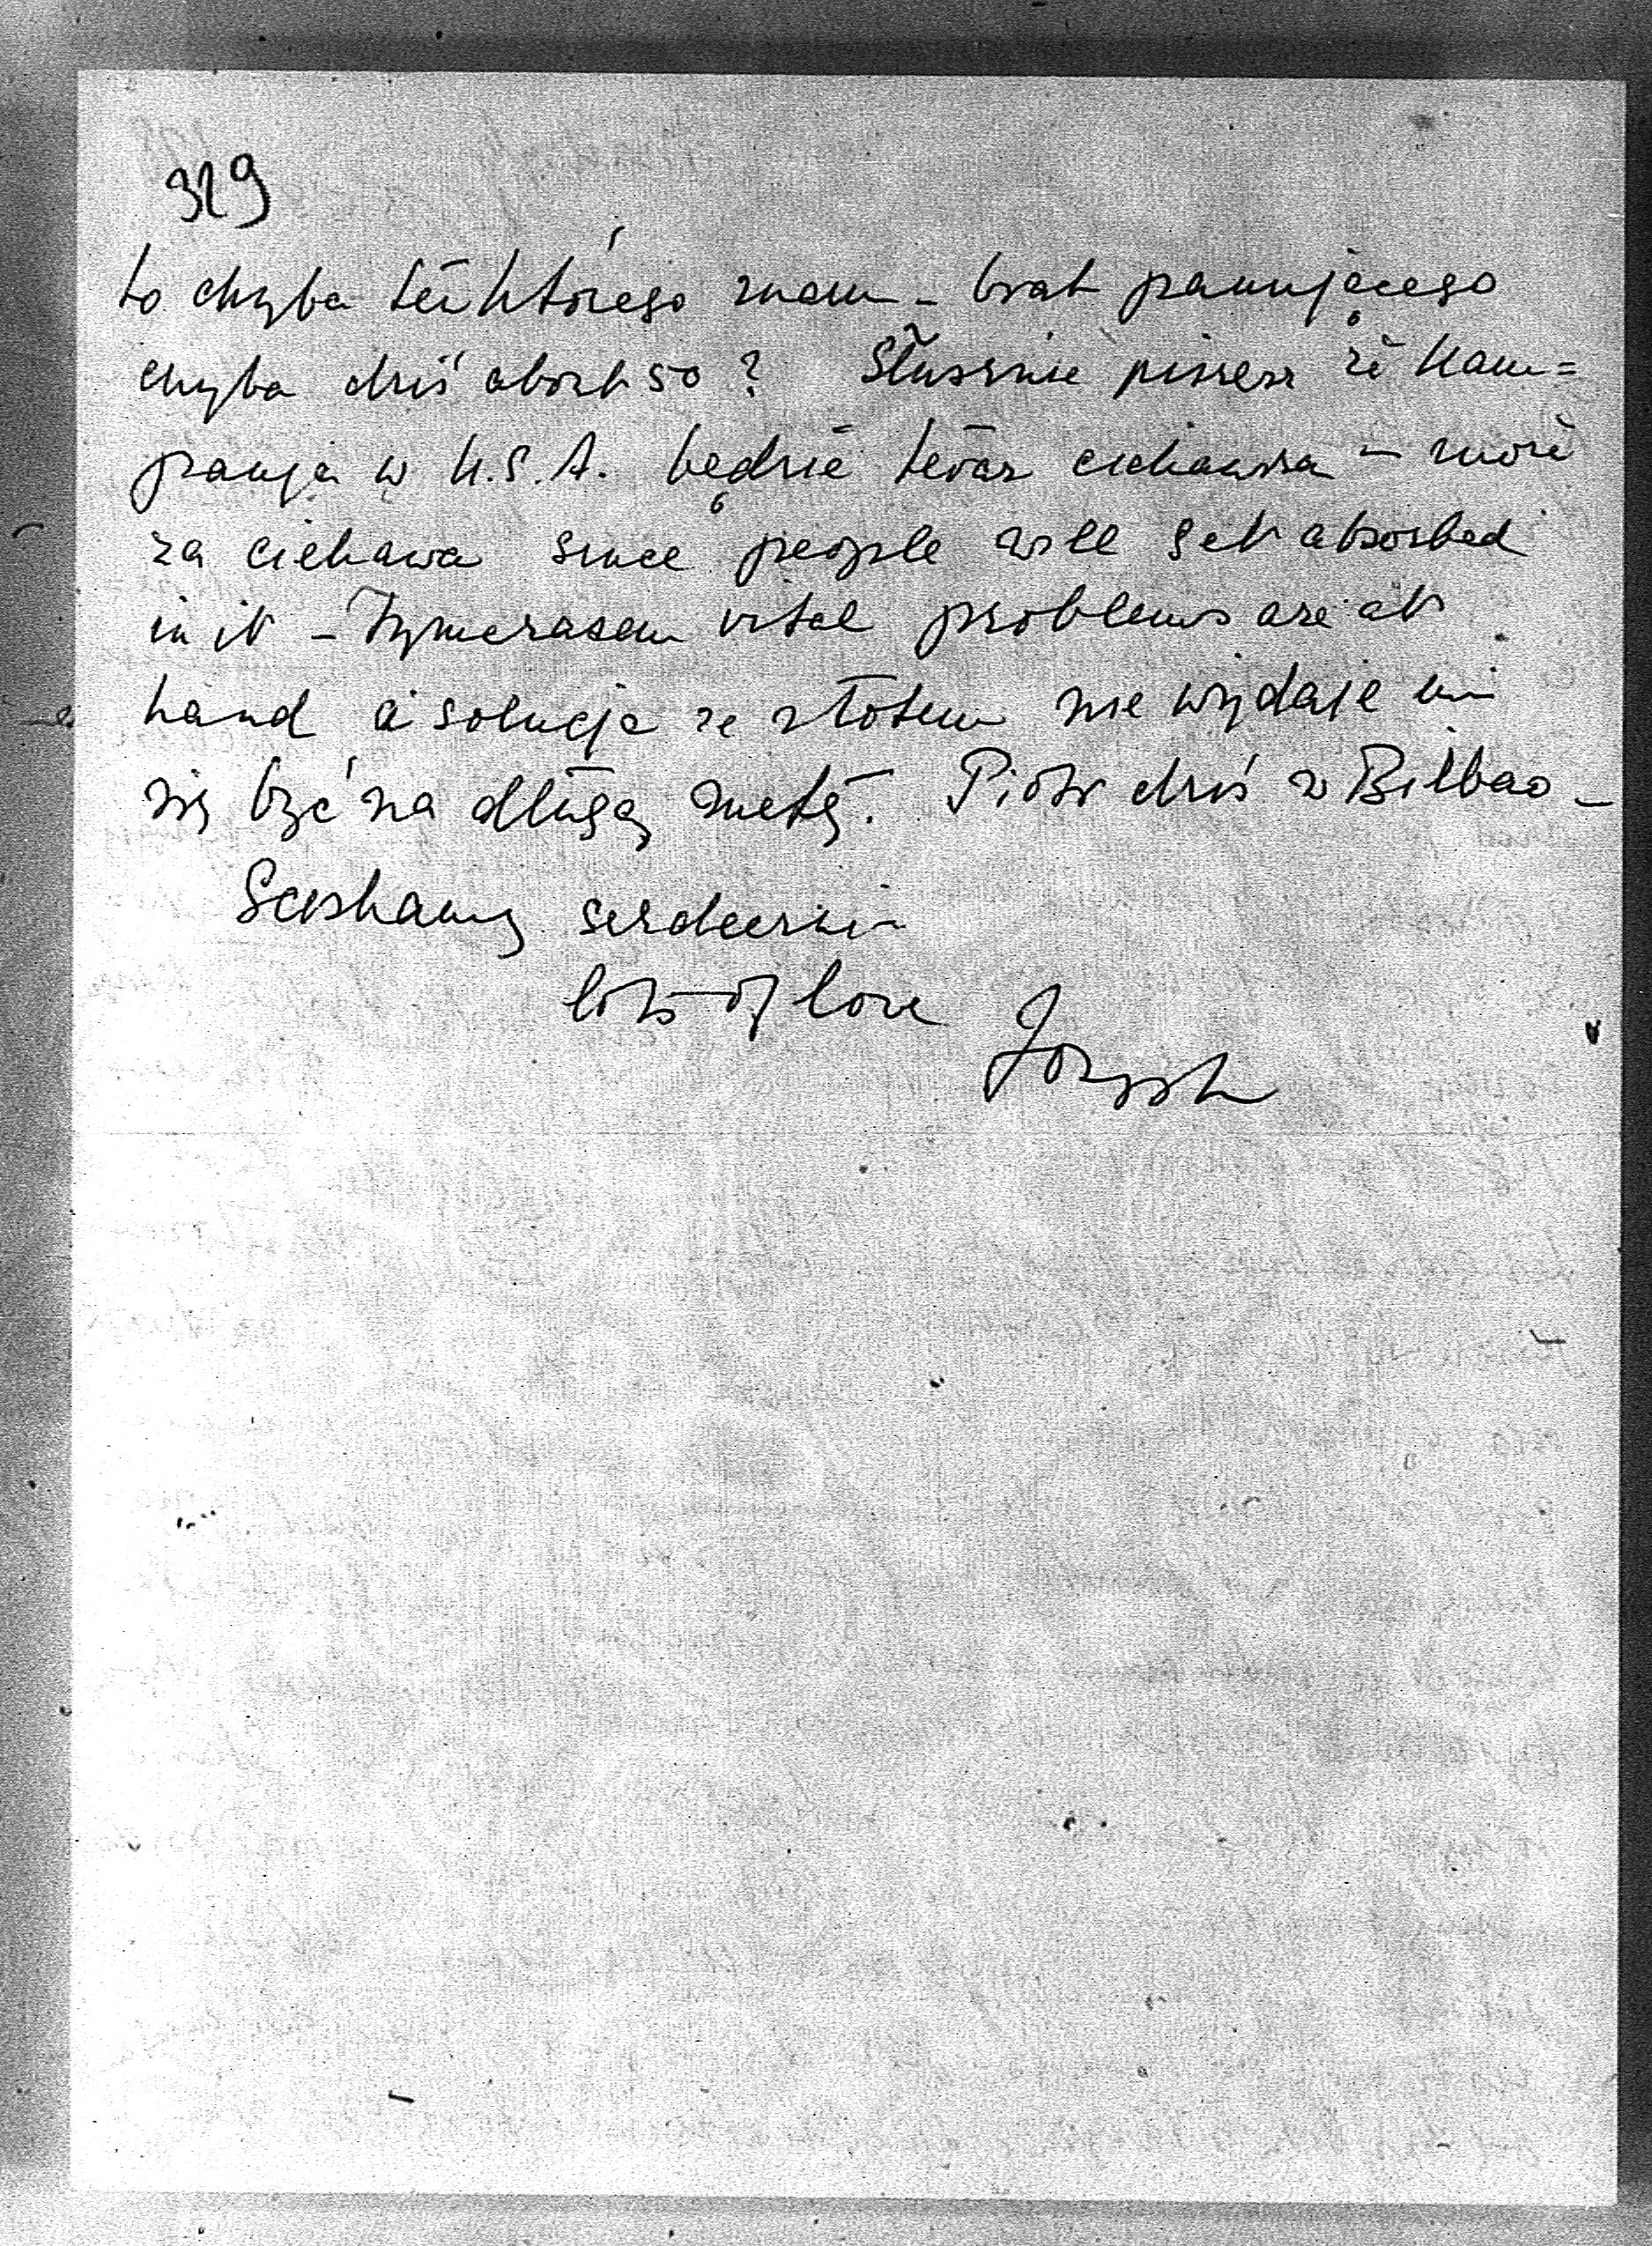 329
to chyba ten którego znam – brat panującego
chyba dziś około 50 ? Słusznie piszesz że kam=
panja w U.S.A. będzie teraz ciekawsza – może
za ciekawa since people will get absorbed
in it – Tymczasem vital problems are at
hand a solucja ze złotem nie wydaje mi
się być na długą metę. Piotr dziś w Bilbao –
Ściskamy serdecznie
lots of love Józef